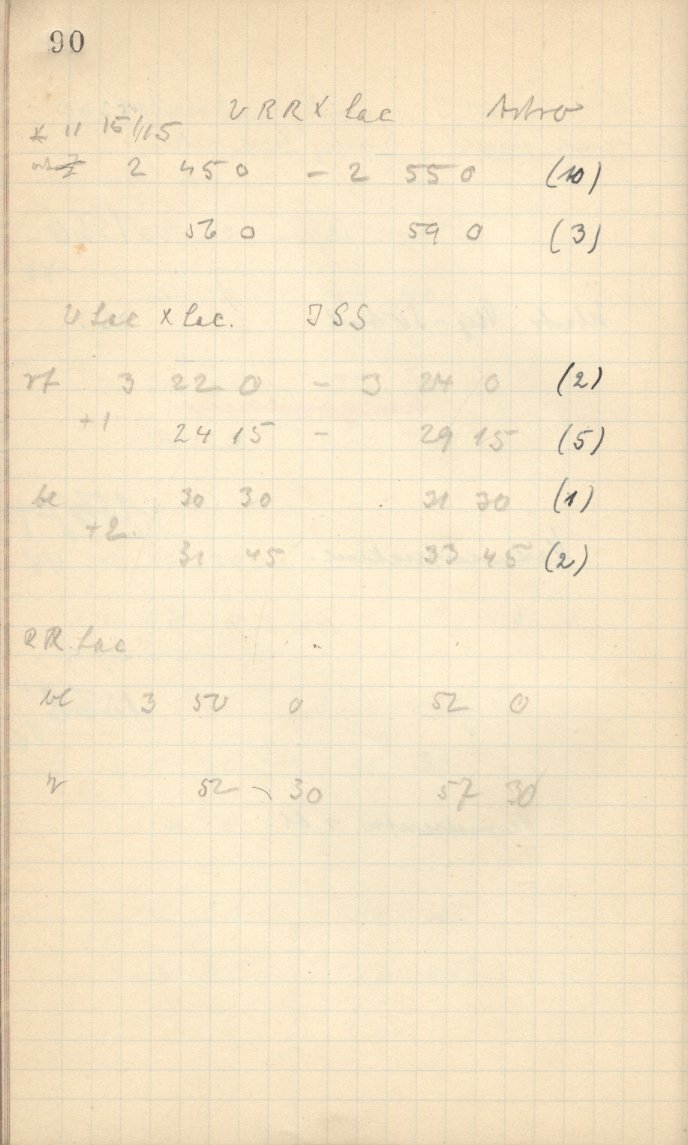 90
V RR X Lac Astro
x 11 15/115
2 45 0 - 2 55 0 (10)
56 0 59 0 (3)
V Lac X Lac. ISS
rf 3 22 0 - 3 24 0 (2)
+1 24 15 - 29 15 (5)
bl 30 30 31 30 (1)
+2
31 45 33 45 (2)
RR Lac
bl 3 50 0 52 0
r 52 30 57 30